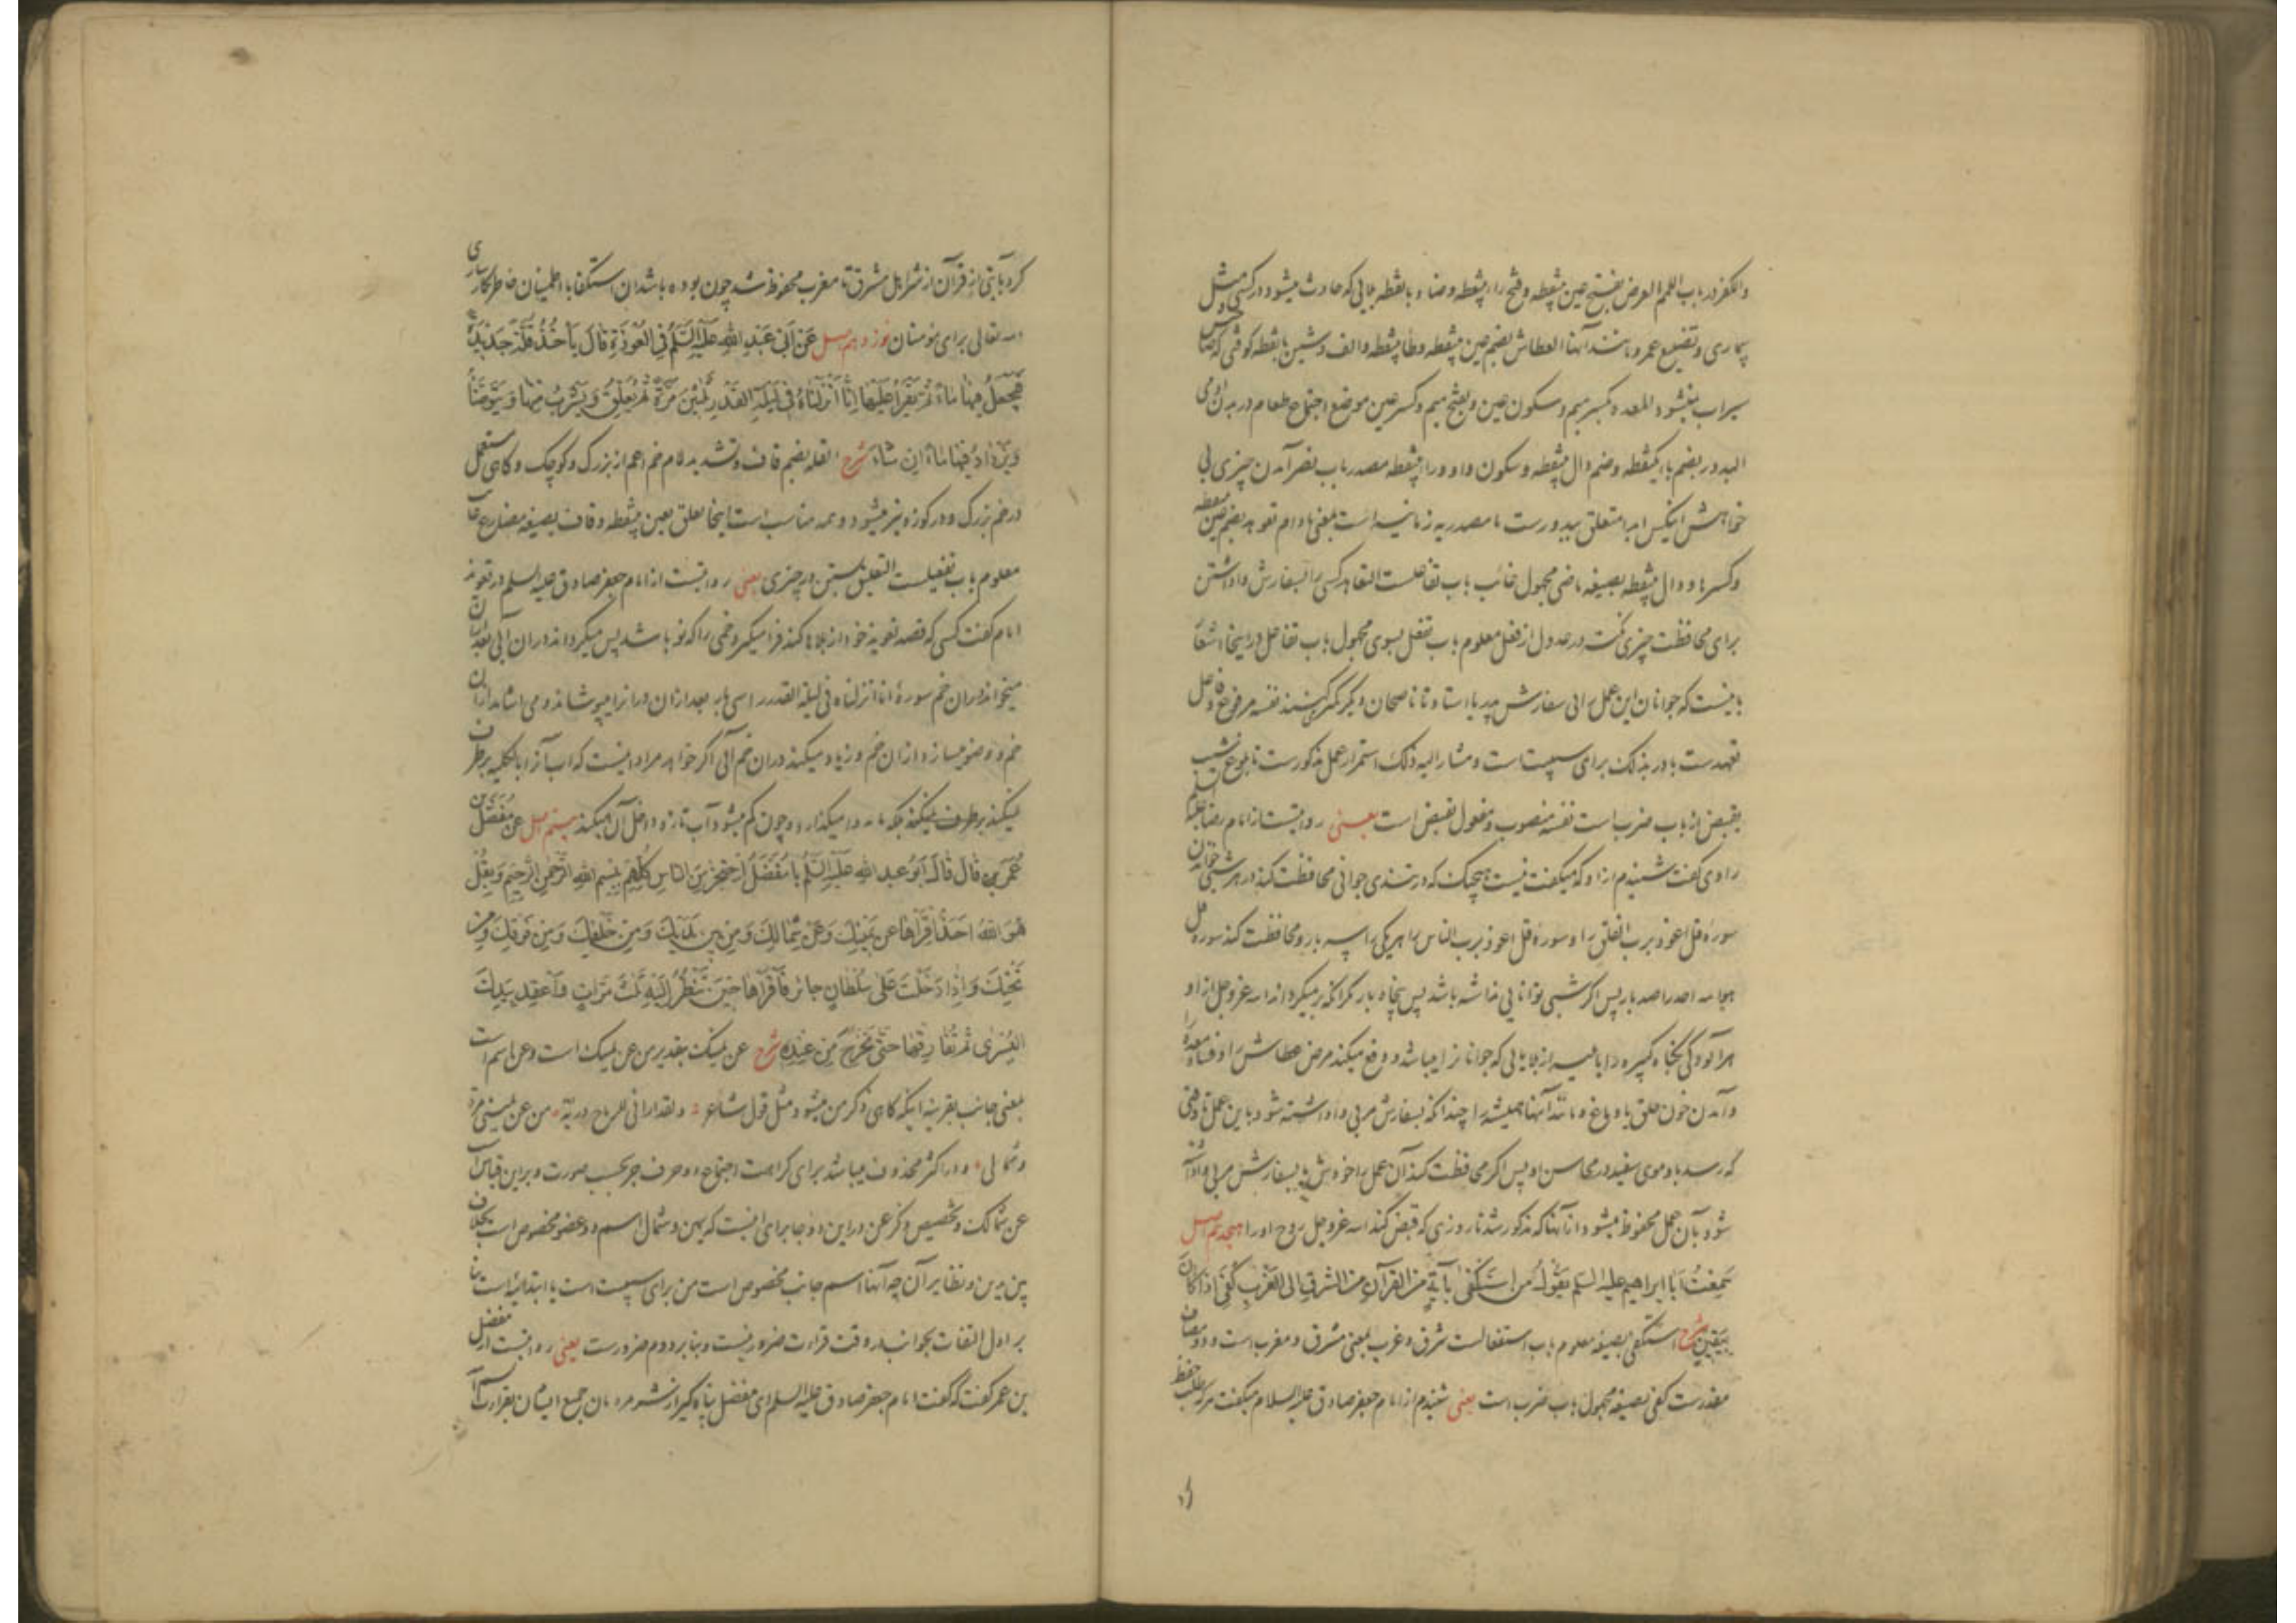 والکفر در باب اللمم العرض بفتح عین بینقطه و فتح راء بینقطه و ضاد با نقطه بلایی که حادث میشود در کسی مثل
بیماری و تضییع عمر و مانند آنها العطاش بضم عین بینقطه و طا بینقطه و الف و شین با نقطه کوفتی که صاحبش
سیراب نمیشود المعده بکسر میم و سکون عین و بفتح میم و کسر عین موضع اجتماع طعام در بدن آدمی
البدور بضم باء یکنقطه و ضم دال بینقطه و سکون واو و راء بینقطه مصدر باب نصر آمدن چیزی بی
خواهش اینکس ابدا متعلق ببدورست ما مصدریه زمانیه است بمعنی مادام تعوهد بضم عین بینقطه
و کسر ها و دال بینقطه بصیغه ماضی مجهول غائب باب تفاعلست التعاهد کسی را بسفارش واداشتن
برای محافظت چیزی گفت در عدول از فعل معلوم باب تفعل بسوی مجهول باب تفاعل در اینجا اشعا
باینست که جوانان این عمل را بی سفارش پدر یا استاد یا ناصحان دیگر کم میکنند نفسه مرفوع و فاعل
تعهدست با در بذلک برای سببیت است و مشار الیه ذلک استمرار عمل مذکورست تا بلوغ شیب
یقبض از باب ضرب است نفسه منصوب و مفعول یقبض است یعنی روایتست از امام رضا علیه السلم
راوی گفت شنیدم از او که میگفت نیست هیچیک که در تندی جوانی محافظت کند در هر شبی خواندن
سورهٔ قل اعوذ برب الفلق را و سورهٔ قل اعوذ برب الناس را هر یکی را سه بار و محافظت کند سورهٔ قل
هو الله احد را صد بار پس اگر شبی توانایی نداشته باشد پس پنجاه بار مگر آنکه برمیگرداند الله عزوجل از او
هر آلودگی بگناه کبیره را یا هر بلایی که جوانان را میباشد و دفع میکند مرض عطاش را و فساد معده را
و آمدن خون حلق یا دماغ و مانند آنها همیشه را چندانکه بسفارش مربی واداشته شود باین عمل تا وقتی
که رسد باو موی سفید در محاسن او پس اگر محافظت کند آن عمل را خودش یا بسفارش مربی واداشته
شود بآن عمل محفوظ میشود از آنها که مذکور شد تا روزی که قبض کند الله عزوجل روح او را هجدهم اصل
سَمِعْتُ اَبَا ابراهیم علیه السلم یَقُولُ مَنِ اسْتَکْفٰی بِآیَةٍ مِنَ القرآنِ مِنَ الشَّرْقِ اِلَی الْغَرْبِ کُفِیَ اِذَا کَانَ
بِیَقِینٍ شرح استکفی بصیغه معلوم باب استفعالست شرق و غرب بمعنی مشرق و مغرب است و دو مضاف
مقدرست کفی بصیغه مجهول باب ضرب است یعنی شنیدم از امام جعفر صادق علیه السلام میگفت هر که طلب حفظ
کرد بآیتی از قرآن از شر اهل مشرق تا مغرب محفوظ شد چون بوده باشد آن استکفا با اطمینان خاطر بکارسازی
الله تعالی برای مؤمنان نوزدهم اصل عَنْ اَبِی عَبْدِ اللهِ عَلَیْهِ السَّلَمُ فِی الْعُوذَةِ قَالَ یَأْخُذُ قُلَّةً جَدِیدَةً
فَیَجْعَلُ فِیهَا مَاءً ثُمَّ یَقْرَأُ عَلَیْهَا اِنَّا اَنْزَلْنَاهُ فِی لَیْلَةِ الْقَدْرِ ثَلٰثِینَ مَرَّةً ثُمَّ یُعَلِّقُ وَ یَشْرَبُ مِنْهَا وَ یَتَوَضَّأُ
وَیَزْدَادُ فِیهَا مَاءً اِن شَاءَ شرح القله بضم قاف و تشدید لام خم اعم از بزرگ و کوچک و گاهی مستعمل
در خم بزرگ و در کوزه نیز میشود و همه مناسب است اینجا یعلق بعین بینقطه و قاف بصیغه مضارع غائب
معلوم باب تفعیلست التعلیق بستن در چیزی یعنی روایتست از امام جعفر صادق علیه السلم در تعویذ
امام گفت کسی که قصد تعویذ خود از بلاها کند فرا میگیرد خمی را که نو باشد پس میگرداند در آن آبی بعد از آن
میخواند در آن خم سورهٔ انا انزلناه فی لیلة القدر را سی بار بعد از آن در آنرا میپوشاند و می‌آشامد از آن
خم و وضو میسازد از آن خم و زیاد میکند در آن خم آبی اگر خواهد مراد اینست که آب آنرا بالکلیه برطرف
نمیکند برطرف نمیکند بلکه مانده را میگذارد و چون کم میشود آب تازه داخل آن میکند بیستم اصل عَنْ مُفَضَّلِ بْنِ
عُمَرَ قَالَ قَالَ اَبُو عبد الله عَلَیْهِ السَّلَمُ یَا مُفَضَّلُ اِحْتَجِزْ مِنَ النَّاسِ کُلِّهِمْ بِبِسْمِ اللهِ الرَّحْمٰنِ الرَّحِیمِ وَ بِقُلْ
هُوَ اللهُ اَحَدٌ اِقْرَأْهَا عَنْ یَمِینِکَ وَعَنْ شِمَالِکَ وَ مِنْ بَیْنِ یَدَیْکَ وَ مِنْ خَلْفِکَ وَ مِنْ فَوْقِکَ وَ مِنْ
تَحْتِکَ وَ اِذَا دَخَلْتَ عَلٰی سُلْطَانٍ جائر فَاقْرَأْهَا حِینَ تَنْظُرُ اِلَیْهِ ثَلٰثَ مَرَّاتٍ وَ اعْقِدْ بِیَدِکَ
الْیُسْرٰی ثُمَّ لَا تُفَارِقْهَا حَتّٰی تَخْرُجَ مِنْ عِنْدِهِ شرح عن یمینک بتقدیر من عن یمینک است و عن اسم است
بمعنی جانب بقرینه اینکه گاهی ذکر من میشود مثل قول شاعر و لقد ارانی للرماح دریّة من عن یمینی مرة
و شمالی و در اکثر محذوف میباشد برای کراهت اجتماع دو حرف جر بحسب صورت و برین قیاس است
عن شمالک و تخصیص ذکر عن در این دو جا برای اینست که یمین و شمال اسم دو عضو مخصوص است بخلاف
بین یدین و نظایر آن چه آنها اسم جانب مخصوص است من برای سببیت است یا ابتدائیه است بنا
بر اول التفات بجوانب در وقت قراءت ضرور نیست و بنا بر دوم ضرورست یعنی روایتست از مفضل
بن عمر گفت که گفت امام جعفر صادق علیه السلم ای مفضل پناه گیر از شر مردمان جمیع ایشان بقراءت